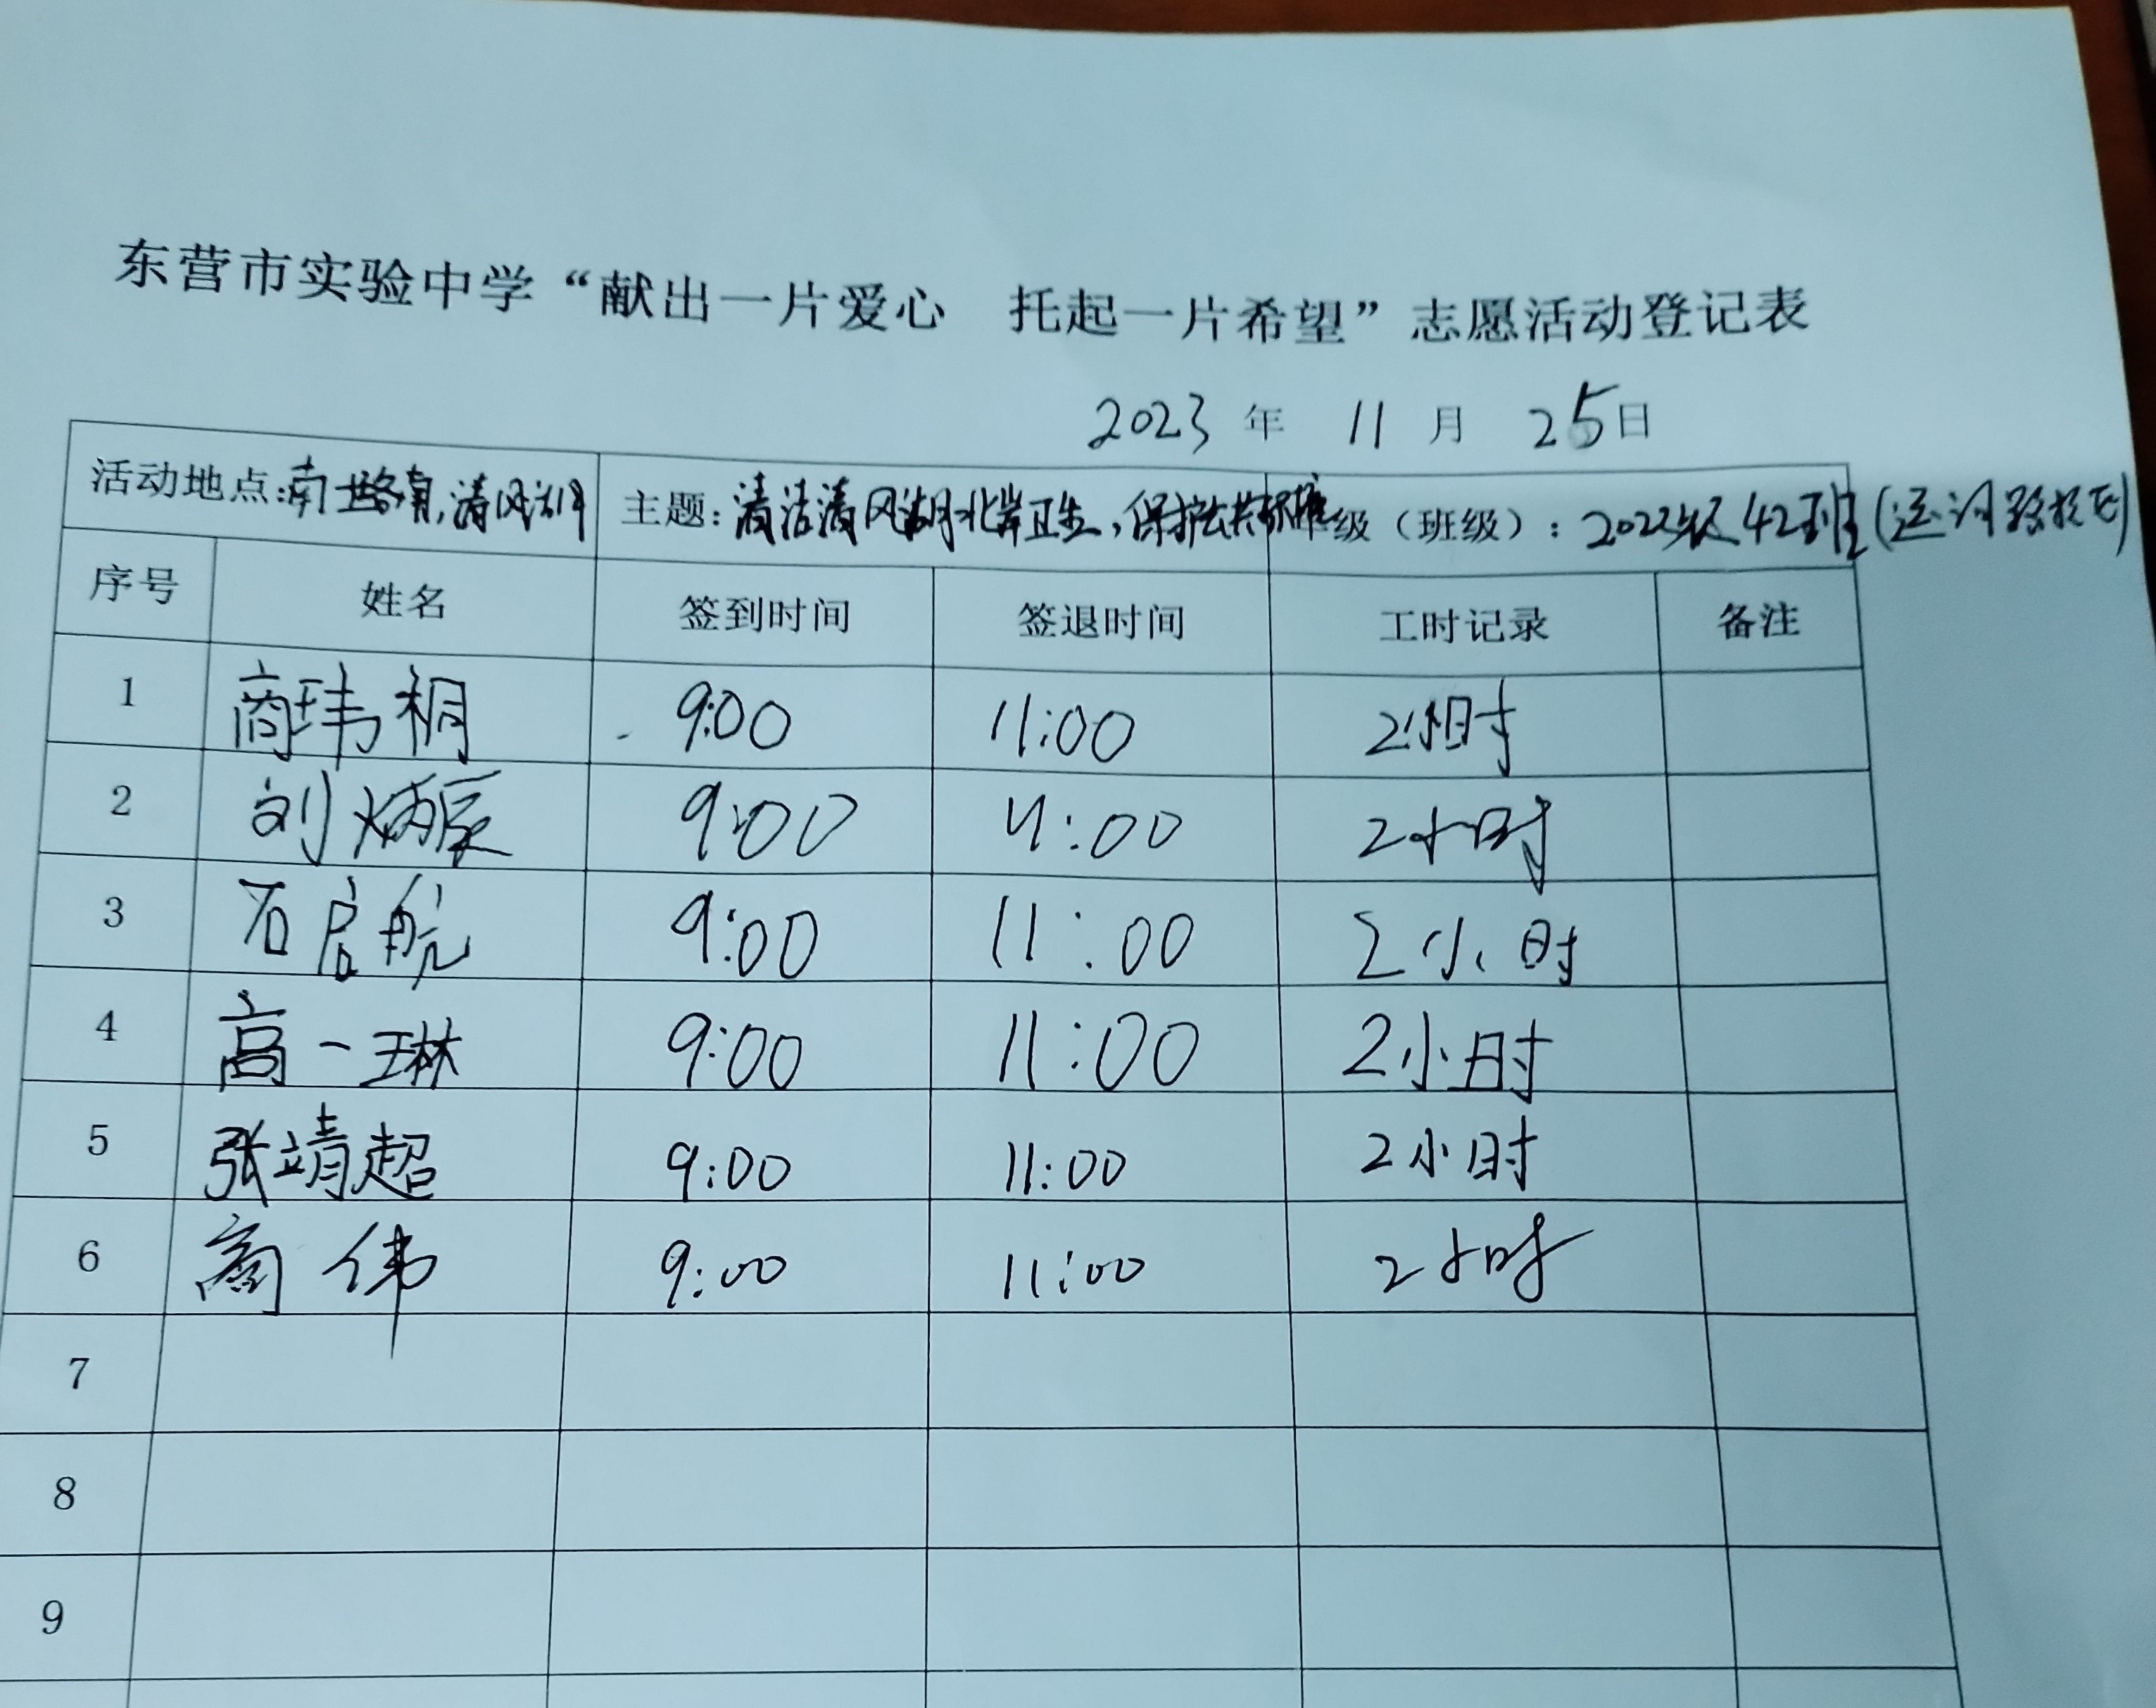 东营市实验中学“献出一片爱心 托起一片希望”志愿活动登记表
2023 年 11 月 25日
活动地点:南 路 清风湖 主题:清洁清风湖北岸卫生,保护公共环境 年级(班级):2022级42班(运河路校区)
序号 姓名 签到时间 签退时间 工时记录 备注
1 商玮桐 9:00 11:00 2小时
2 刘炳辰 9:00 11:00 2小时
3 石启航 9:00 11:00 2小时
4 高一琳 9:00 11:00 2小时
5 张靖超 9:00 11:00 2小时
6 商伟 9:00 11:00 2小时
7
8
9